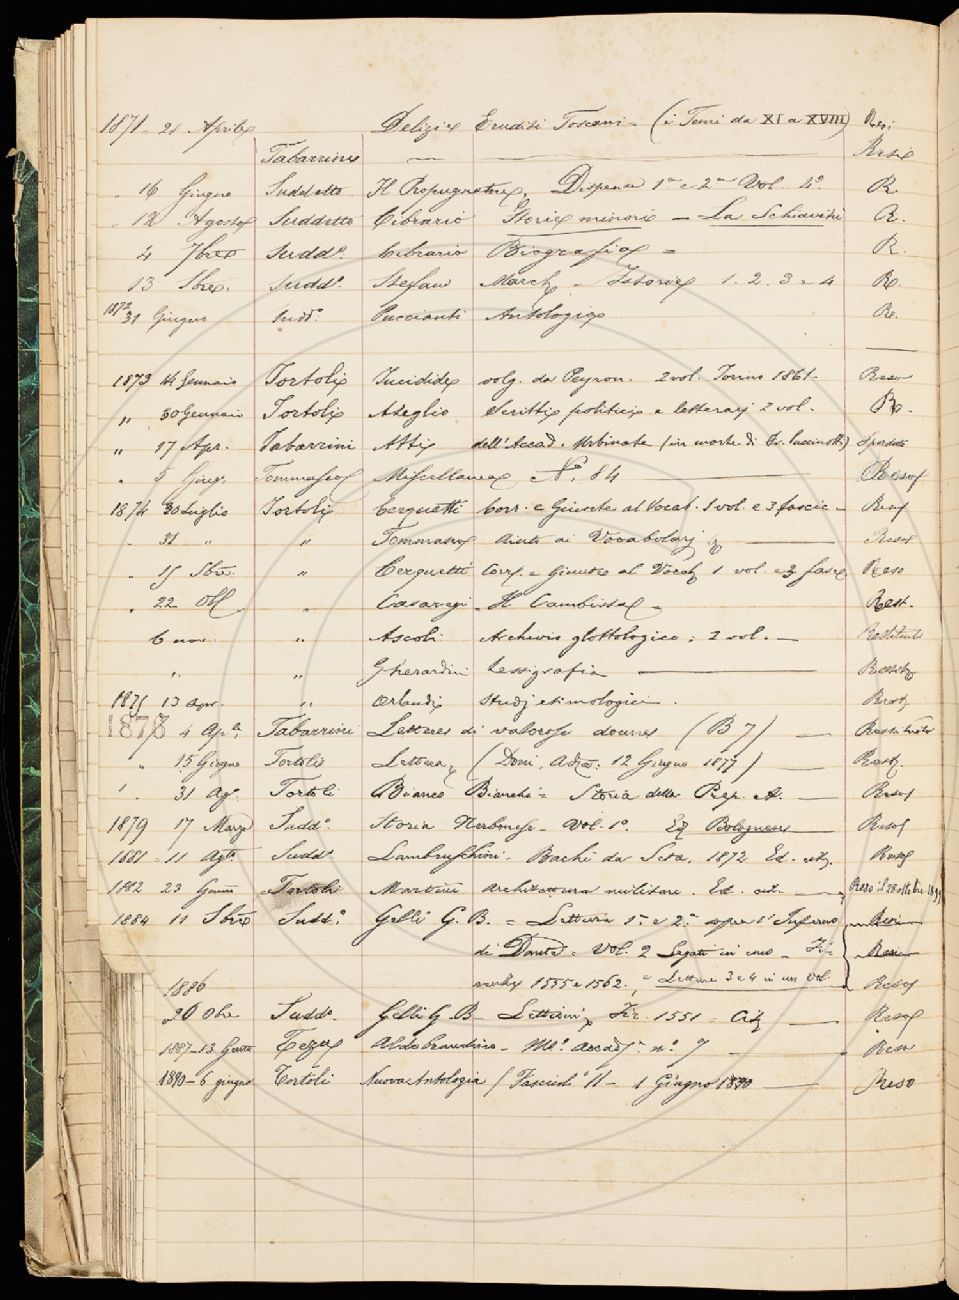 1871 - 21 Aprile Delizie Eruditi Toscani - (i Tomi da XI a XVIII) Resi
Tabarrini — — Resie
" 16 Giugno Suddetto Il Propugnatore. Dispense 1ª e 2ª Vol. 4º R.
" 12 Agosto Suddetto Cibrario Storie minori — La Schiavitù R.
4 7bre Sudd.º Cibrario Biografia = R.
13 8bre. Sudd.º Stefani March. Istorie 1. 2. 3 e 4 R.
1872
31 Giugno Sudd.º Puccianti Antologia R.
1873 14 Gennaio Tortoli Tucidide volg. da Peyron. 2 vol. Torino 1861 - Reso
" 30 Gennaio Tortoli Azeglio Scritti politici e letterarj 2 vol. R.
" 17 Apr. Tabarrini Atti dell'Accad. Urbinate (in morte di Fr. Puccinotti)
" 5 Giug. Tommaseo Miscellanea Nº. 84 — Reso
1874 30 Luglio Tortoli Cerquetti Corr. e Giunte al Vocab. 1 vol. e 3 fascic - Reso
" 31 " " Tommaseo Aiuti ai Vocabolarj — Reso
" 15 8bre " Cerquetti Corr. e Giunte al Vocab. 1 vol. e 3 fasc. Reso
" 22 Ott. " Casaregi - Il Cambista - Rest.
6 nov. " Ascoli Archivio glottologico ; 2 vol. — Restituito
" " Gherardini Lessigrafia — Restit.
1875 13 apr. " Orlandi Studj etimologici . Rest.
1878 4 Apr. Tabarrini Lettere di valorose donne (B 7) — Restituito
" 15 Giugno Tortoli Lettura (Doni, Adza. 12 Giugno 1877) — Rest.
" 31 Ag. Tortoli Bianco Bianchi = Storia della Rep. — Reso
1879 17 Marzo Sudd.º Storia Nerbonese - Vol. 1º. Ed. Bolognese — Reso
1881 - 11 Ag. Sudd.º Lambruschini. Bachi da Seta. 1872 Ed. Reso
1882 23 Genn. Tortoli Martini Architettura militare. Ed. — Reso il 28 ottobre 1899
1884 11 8bre Sudd.º Gelli G. B. = Lettura 1ª e 2ª sopra l'Inferno Reso
di Dante - Vol. 2 legati in uno - Fi= Reso
renze 1555 e 1562. = Letture 3 e 4 in un vol. Reso
1886
20 9bre Sudd.º Gelli G. B - Lezioni, Fir. 1551 - Cit. — Reso
1887 - 13 Genn. Teza Aldobrandino - Ms. Accad. nº 7 — Reso
1890 - 6 giugno Tortoli Nuova Antologia (Fascicol.º 11 - 1 Giugno 1890 — Reso